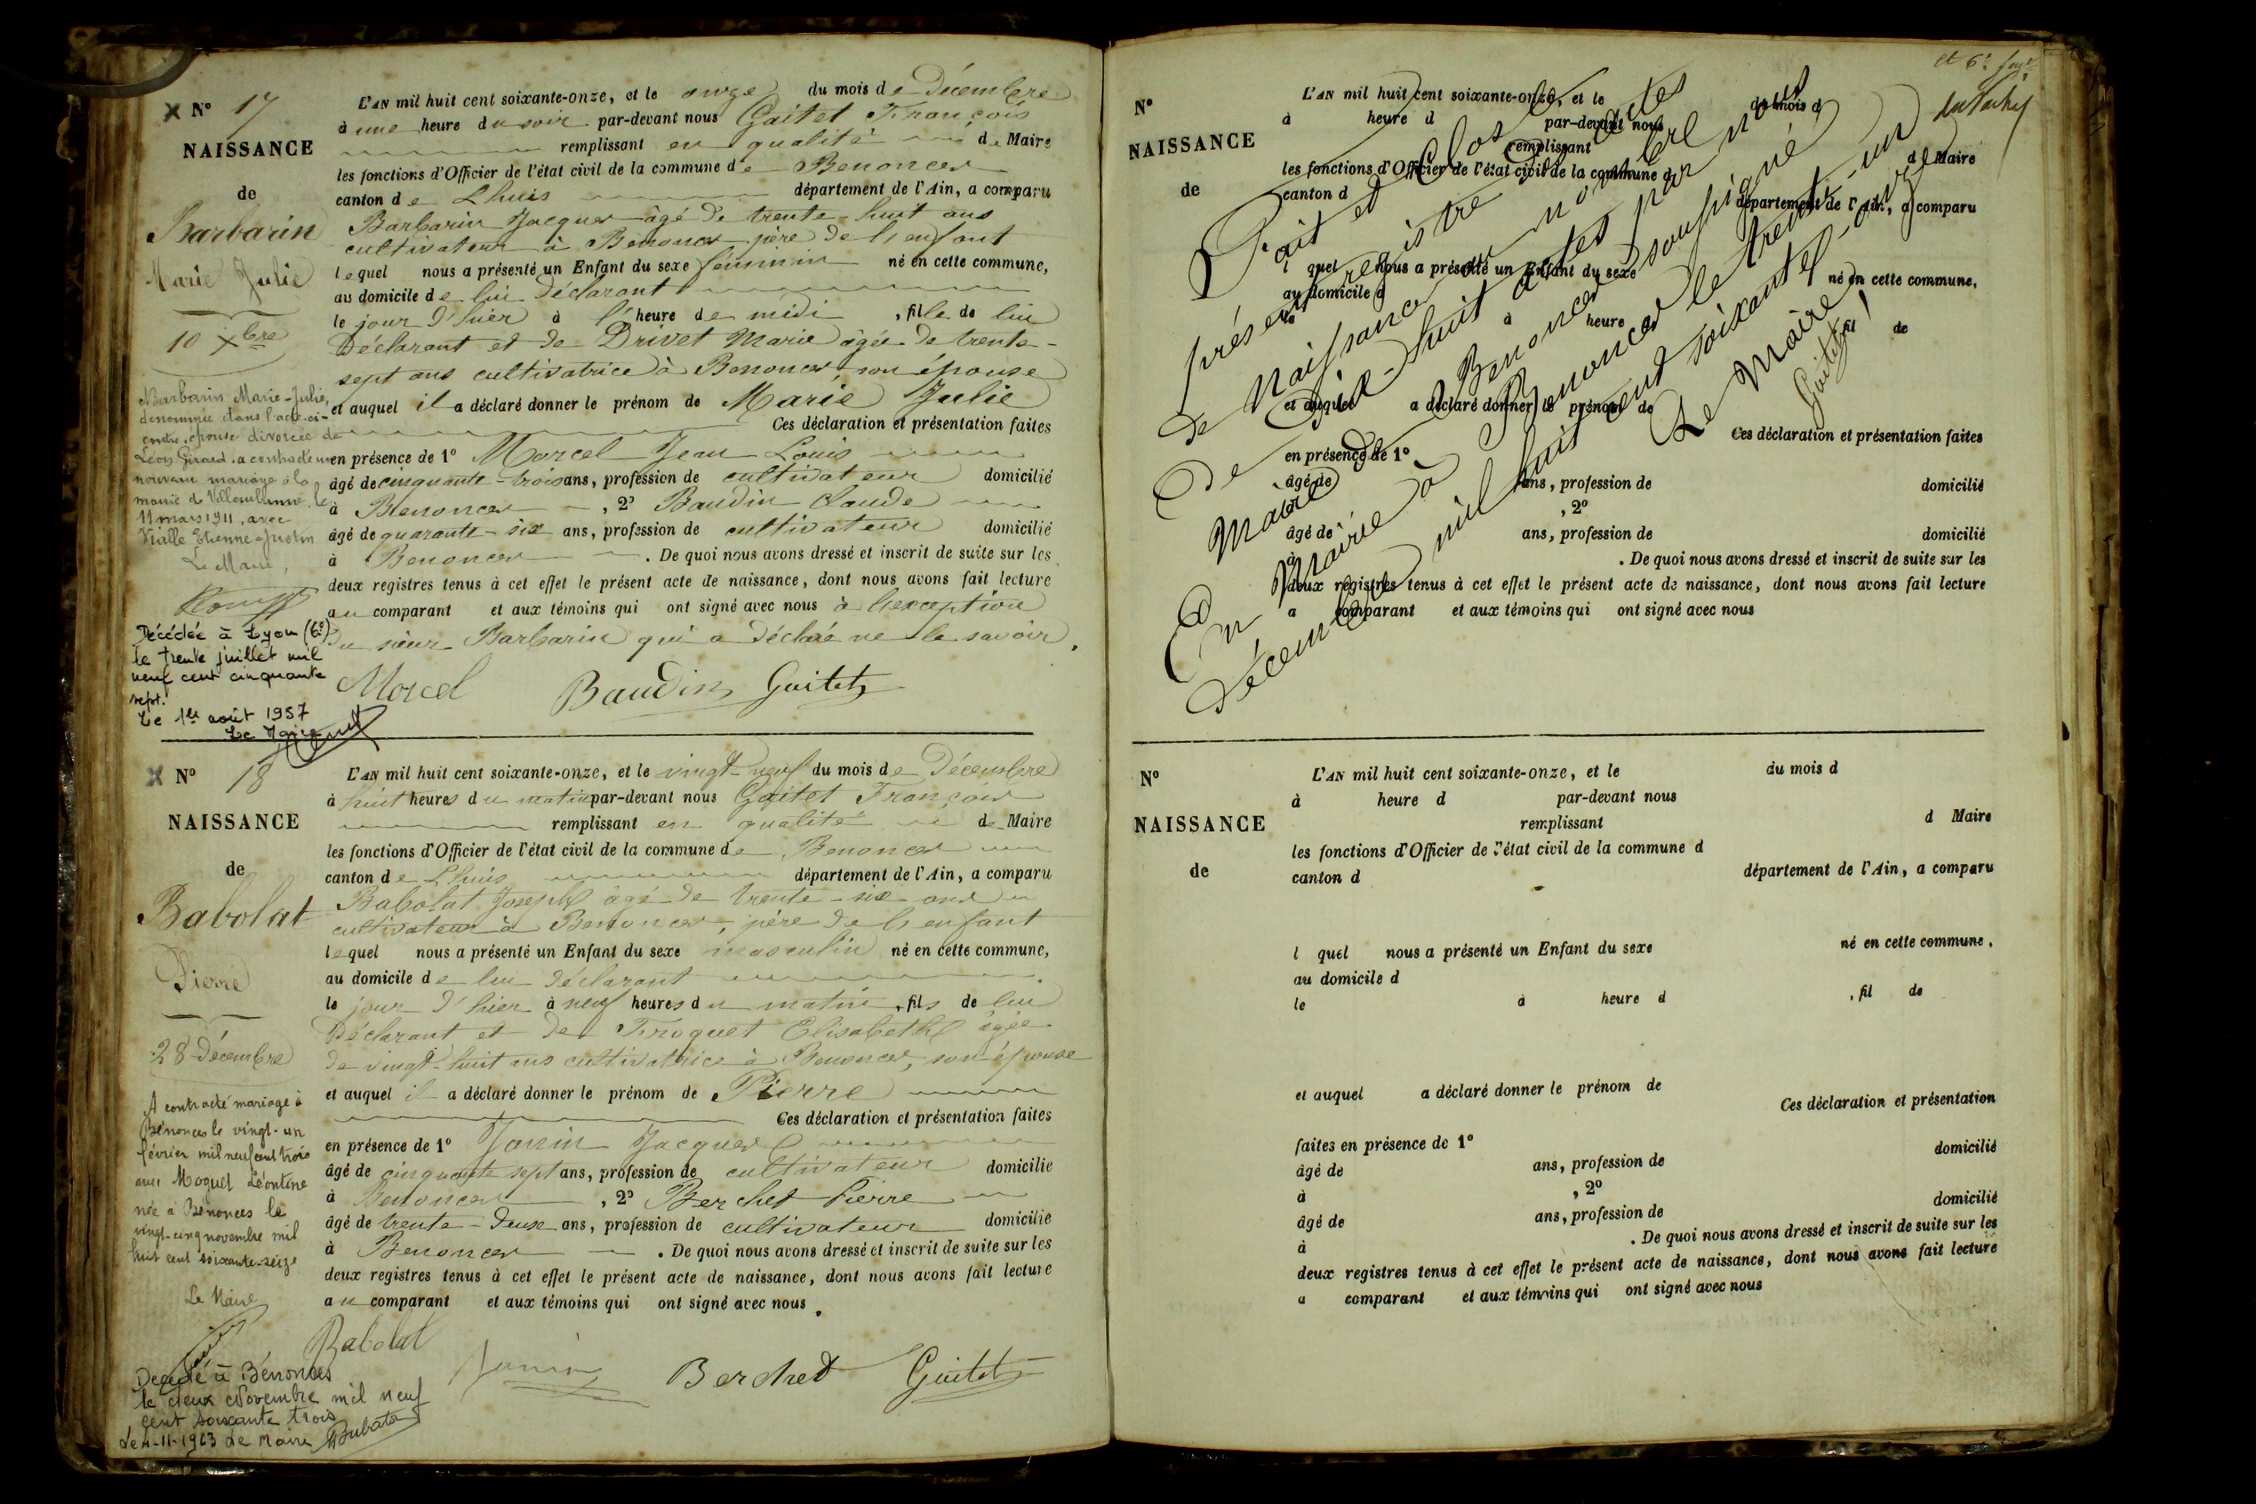 N° 17
NAISSANCE
de
Barbarin
Marie Julie
10 Xbre
Barbarin Marie-Julie,
dénommée dans l'acte ci-
contre, épouse divorcée de
Léon Girard, a contracté un
nouveau mariage à la
mairie de Villeurbanne, le
11 mars 1911, avec
Vialle Etienne-Justin
Le Maire,
Décédée à Lyon (6e)
le trente juillet mil
neuf cent cinquante
sept.
Le 1er août 1957
Le Maire
L'AN mil huit cent soixante-onze, et le onze du mois de Décembre
à une heure du soir par-devant nous Gaitet François
remplissant en qualité de Maire
les fonctions d'Officier de l'état civil de la commune de Benonces
canton de Lhuis département de l'Ain, a comparu
Barbarin Jacques âgé de trente-huit ans
cultivateur à Benonces père de l'enfant
lequel nous a présenté un Enfant du sexe féminin né en cette commune,
au domicile de lui déclarant
le jour d'hier à l'heure de midi, fille de lui
Déclarant et de Drivet Marie âgée de trente-
sept ans cultivatrice à Benonces son épouse
et auquel il a déclaré donner le prénom de Marie Julie
Ces déclaration et présentation faites
en présence de 1° Morcel Jean Louis
âgé de cinquante-trois ans, profession de cultivateur domicilié
à Benonces, 2° Baudin Claude
âgé de quarante-six ans, profession de cultivateur domicilié
à Benonces. De quoi nous avons dressé et inscrit de suite sur les
deux registres tenus à cet effet le présent acte de naissance, dont nous avons fait lecture
au comparant et aux témoins qui ont signé avec nous à l'exception
du sieur Barbarin qui a déclaré ne le savoir.
Morcel Baudin Gaitet
N° 18
NAISSANCE
de
Babolat
Pierre
28 Décembre
A contracté mariage à
Bénonces le vingt-un
février mil neuf cent trois
avec Moguet Léontine
née à Bénonces le
vingt-cinq novembre mil
huit cent soixante-seize
Le Maire
Décédé à Bénonces
le deux Novembre mil neuf
cent soixante trois
Le Maire
L'AN mil huit cent soixante-onze, et le vingt-neuf du mois de Décembre
à huit heures du matin par-devant nous Gaitet François
remplissant en qualité de Maire
les fonctions d'Officier de l'état civil de la commune de Benonces
canton de Lhuis département de l'Ain, a comparu
Babolat Joseph âgé de trente-six ans
cultivateur à Benonces, père de l'enfant
lequel nous a présenté un Enfant du sexe masculin né en cette commune,
au domicile de lui déclarant
le jour d'hier à neuf heures du matin, fils de lui
Déclarant et de Troquet Elisabeth âgée
de vingt-huit ans cultivatrice à Benonces, son épouse
et auquel il a déclaré donner le prénom de Pierre
Ces déclaration et présentation faites
en présence de 1° Janin Jacques
âgé de cinquante sept ans, profession de cultivateur domicilié
à Benonces, 2° Berchet Pierre
âgé de trente-deux ans, profession de cultivateur domicilié
à Benonces. De quoi nous avons dressé et inscrit de suite sur les
deux registres tenus à cet effet le présent acte de naissance, dont nous avons fait lecture
au comparant et aux témoins qui ont signé avec nous.
Babolat Janin Berchet Gaitet
N°
NAISSANCE
de
L'AN mil huit cent soixante-onze, et le du mois d
à heure d par-devant nous
remplissant d Maire
les fonctions d'Officier de l'état civil de la commune d
canton d département de l'Ain, a comparu
l quel nous a présenté un Enfant du sexe né en cette commune,
au domicile d
le à heure d, fil de
et auquel a déclaré donner le prénom de
Ces déclaration et présentation faites
en présence de 1°
âgé de ans, profession de domicilié
à, 2°
âgé de ans, profession de domicilié
à. De quoi nous avons dressé et inscrit de suite sur les
deux registres tenus à cet effet le présent acte de naissance, dont nous avons fait lecture
a comparant et aux témoins qui ont signé avec nous
Fait et Clos le
présent registre des actes
de Naissance au nombre
de dix-huit actes par nous
Maire de Benonces soussigné
En Mairie à Benonces le trente-un
décembre mil huit cent soixante-onze
Le Maire
Gaitet
N°
NAISSANCE
de
L'AN mil huit cent soixante-onze, et le du mois d
à heure d par-devant nous
remplissant d Maire
les fonctions d'Officier de l'état civil de la commune d
canton d département de l'Ain, a comparu
l quel nous a présenté un Enfant du sexe né en cette commune,
au domicile d
le à heure d, fil de
et auquel a déclaré donner le prénom de
Ces déclaration et présentation
faites en présence de 1°
âgé de ans, profession de domicilié
à, 2°
âgé de ans, profession de domicilié
à. De quoi nous avons dressé et inscrit de suite sur les
deux registres tenus à cet effet le présent acte de naissance, dont nous avons fait lecture
a comparant et aux témoins qui ont signé avec nous